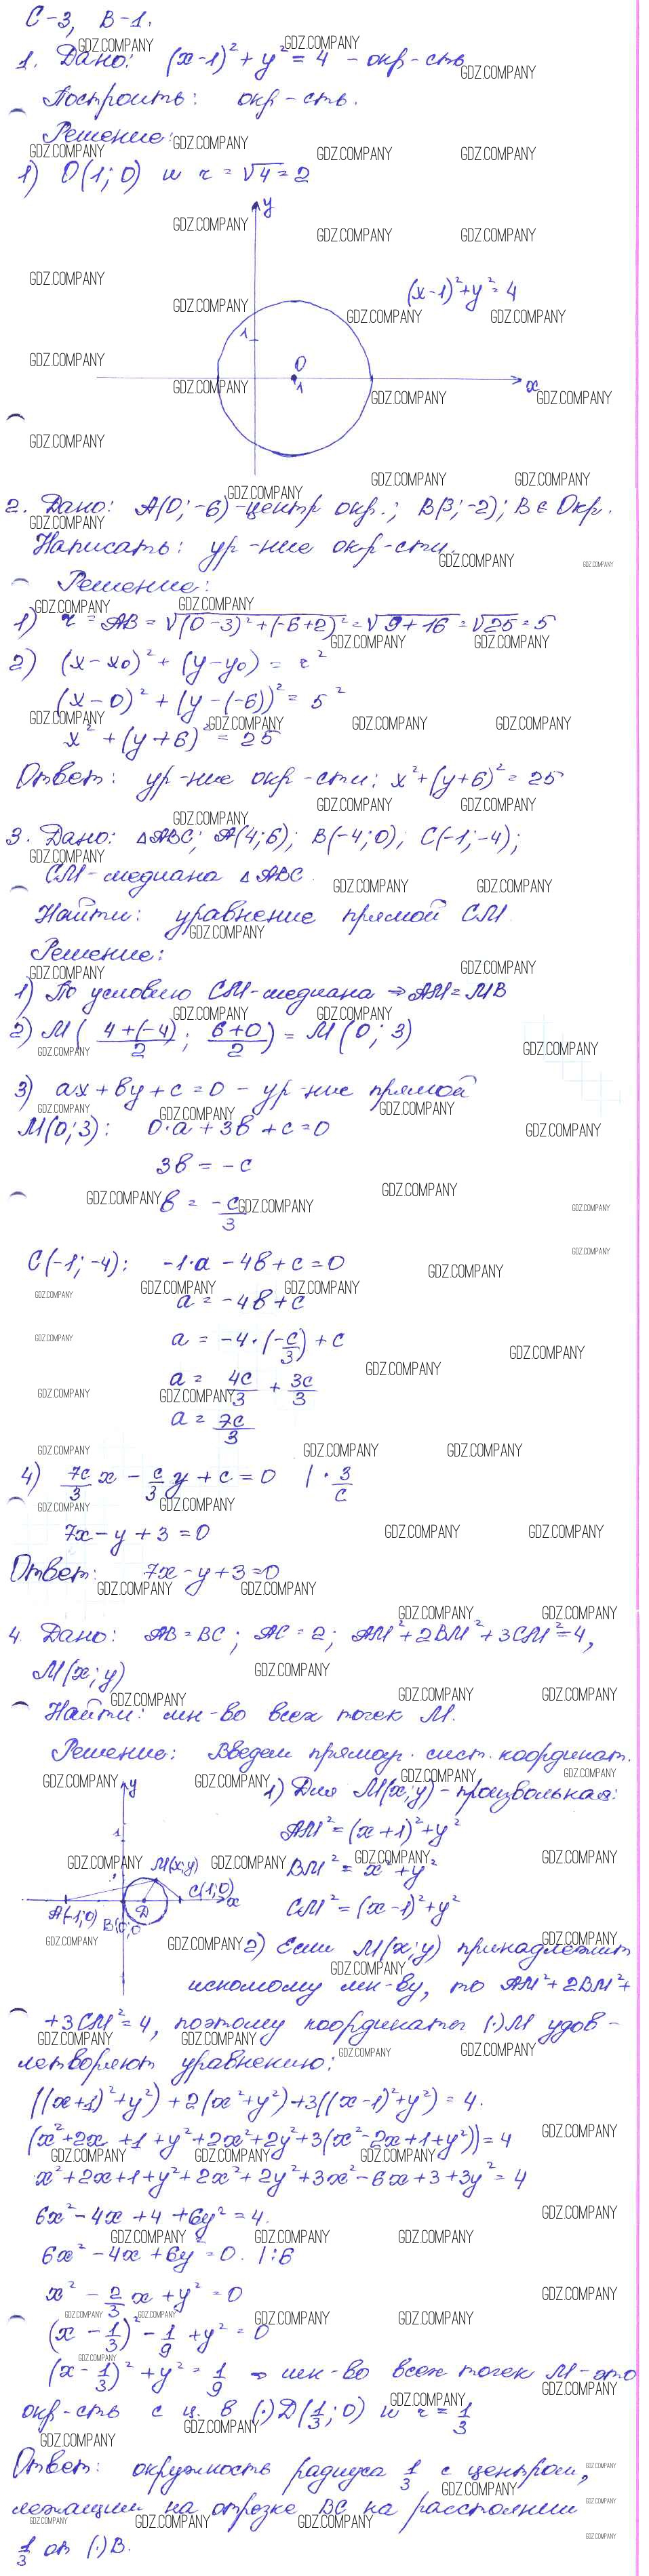 С-3, В-1.
1. Дано: (x-1)² + y² = 4 - окр-сть
Построить: окр-сть.
Решение:
1) O(1; 0) и r = √4 = 2
y
(x-1)² + y² = 4
1
O
1
x
2. Дано: A(0; -6) - центр окр.; B(3; -2); B ∈ Окр.
Написать: ур-ние окр-сти.
Решение:
1) r = AB = √(0-3)² + (-6+2)² = √9+16 = √25 = 5
2) (x-x0)² + (y-y0) = r²
(x-0)² + (y-(-6))² = 5²
x² + (y+6)² = 25
Ответ: ур-ние окр-сти: x² + (y+6)² = 25
3. Дано: △ABC; A(4; 6); B(-4; 0); C(-1; -4);
CM - медиана △ABC.
Найти: уравнение прямой CM
Решение:
1) По условию CM - медиана ⇒ AM = MB
2) M( 4+(-4)/2 ; 6+0/2 ) = M(0; 3)
3) ax + by + c = 0 - ур-ние прямой
M(0; 3): 0·a + 3b + c = 0
3b = -c
b = -c/3
C(-1; -4): -1·a - 4b + c = 0
a = -4b + c
a = -4·(-c/3) + c
a = 4c/3 + 3c/3
a = 7c/3
4) 7c/3 x - c/3 y + c = 0 | · 3/c
7x - y + 3 = 0
Ответ: 7x - y + 3 = 0
4. Дано: AB = BC; AC = 2; AM² + 2BM² + 3CM² = 4,
M(x; y)
Найти: мн-во всех точек M.
Решение: Введем прямоуг. сист. координат.
y
1
M(x;y)
C(1;0)
x
A(-1;0)
B(0;0)
D
1) Для M(x; y) - произвольная:
AM² = (x+1)² + y²
BM² = x² + y²
CM² = (x-1)² + y²
2) Если M(x; y) принадлежит
искомому мн-ву, то AM² + 2BM² +
+ 3CM² = 4, поэтому координаты (·)M удов-
летворяют уравнению:
((x+1)² + y²) + 2(x² + y²) + 3((x-1)² + y²) = 4.
(x² + 2x + 1 + y² + 2x² + 2y² + 3(x² - 2x + 1 + y²)) = 4
x² + 2x + 1 + y² + 2x² + 2y² + 3x² - 6x + 3 + 3y² = 4
6x² - 4x + 4 + 6y² = 4.
6x² - 4x + 6y² = 0. |:6
x² - 2/3 x + y² = 0
(x - 1/3)² - 1/9 + y² = 0
(x - 1/3)² + y² = 1/9 ⇒ мн-во всех точек M - это
окр-сть с ц. в (·)D(1/3; 0) и r = 1/3
Ответ: окружность радиуса 1/3 с центром,
лежащим на отрезке BC на расстоянии
1/3 от (·)B.
GDZ.COMPANY